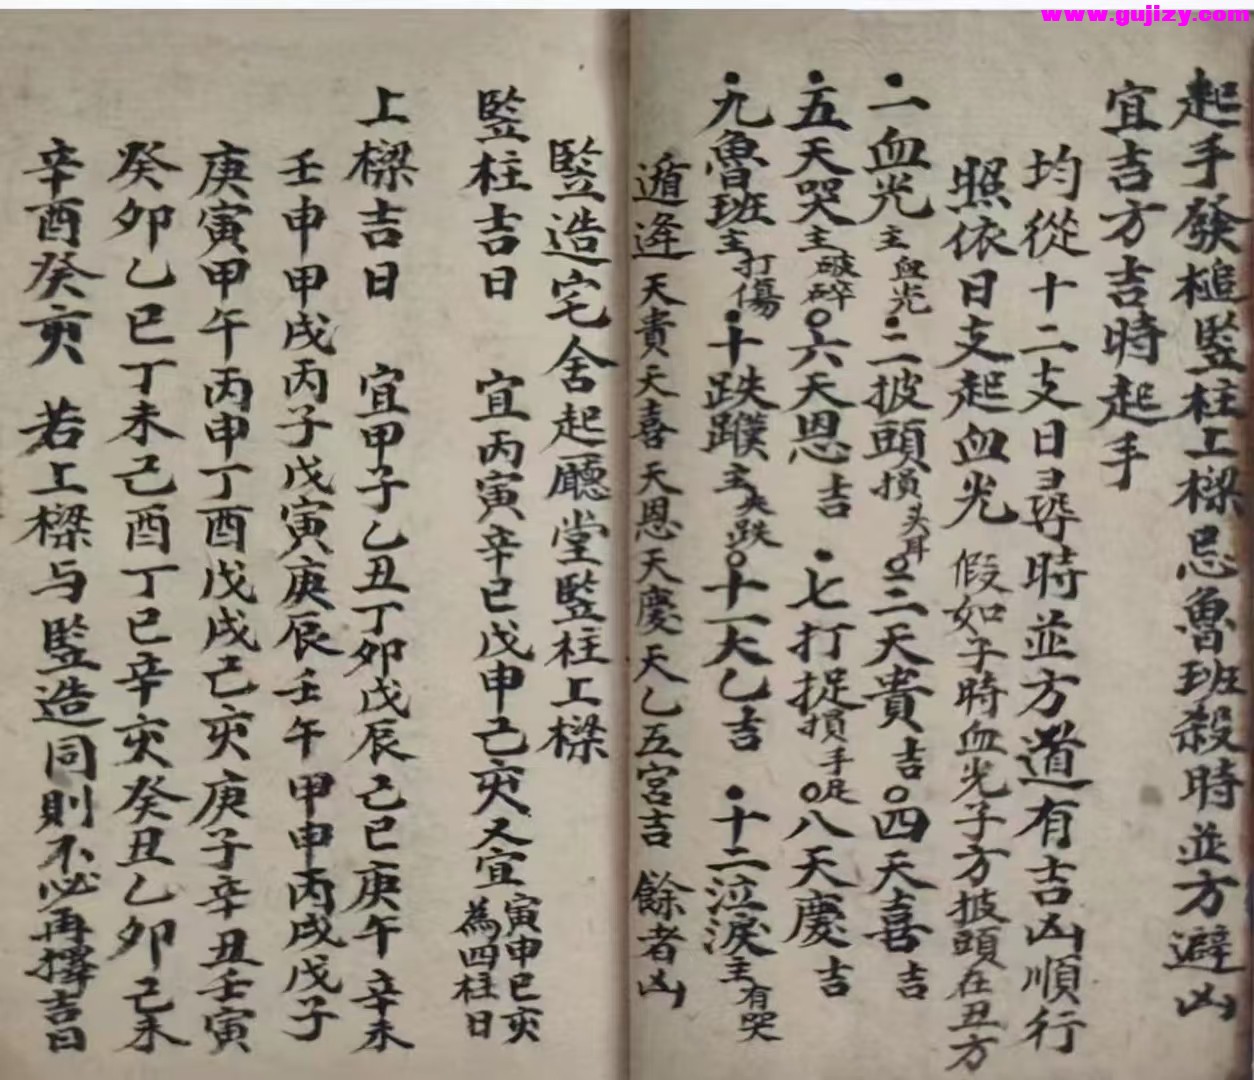 www.gujizy.com
起手發槌竪柱上樑忌魯班殺時並方避凶
宜吉方吉時起手
均從十二支日尋時並方道有吉凶順行
照依日支起血光 假如子時血光子方披頭在丑方
一血光主血光 二披頭損头耳 三天貴吉 四天喜吉
五天哭主破碎 六天恩吉 七打捉損手足 八天慶吉
九魯班主打傷 十跌蹼主夹跌 十一太乙吉 十二泣淚主有哭
遁逄天貴天喜天恩天慶天乙五宮吉 餘者凶
竪造宅舍起廳堂竪柱上樑
竪柱吉日 宜丙寅辛巳戊申己亥又宜寅申巳亥為四柱日
上樑吉日 宜甲子乙丑丁卯戊辰己巳庚午辛未
壬申甲戌丙子戊寅庚辰壬午甲申丙戌戊子
庚寅甲午丙申丁酉戊戌己亥庚子辛丑壬寅
癸卯乙巳丁未己酉丁巳辛亥癸丑乙卯己未
辛酉癸亥 若上樑与竪造同則不必再擇吉日